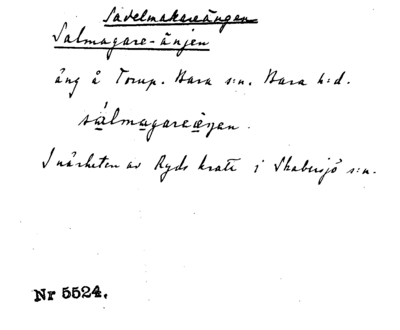 Sadelmakareängen
Salmagare-änjen
äng å Torup. Bara s:n. Bara h:d.
sálmagareäŋen.
I närheten av Ryds kratt i Skabersjö s:n.
Nr 5524.